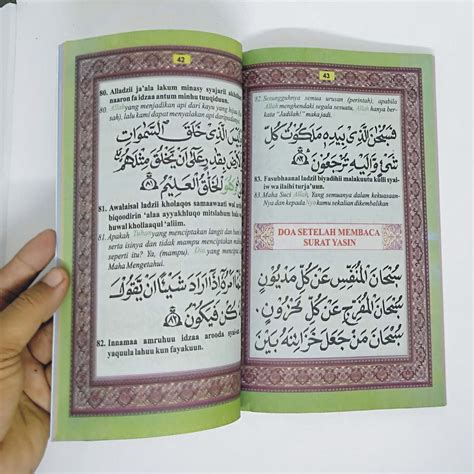 42
80. Alladzii ja'ala lakum minasy syajaril akhdlari
naaron fa idzaa antum minhu tuuqiduun.
80. Allah yang menjadikan api dari kayu yang hijau
الَّذِي خَلَقَ السَّمٰوَاتِ
بِقٰدِرٍ عَلٰى أَنْ يَخْلُقَ مِثْلَهُمْ
الْخَلّٰقُ الْعَلِيْمُ
81. Awalaisal ladzii kholaqos samaawaati wal
biqoodirin 'alaa ayyakhluqo mitslahum
huwal khollaaqul 'aliim.
81. Apakah Tuhan yang menciptakan langit dan
serta isinya dan tidak mampu menciptakan
seperti itu? Ya, (mampu). Dia yang
Maha Mengetahui.
إِذَا أَرَادَ شَيْئًا أَنْ يَقُوْلَ
كُنْ فَيَكُوْنُ ﴿٨٢﴾
82. Innamaa amruhuu idzaa arooda syai-an
yaquula lahuu kun fayakuun.
43
82. Sesungguhnya semua urusan (perintah), apabila
Allah menghendaki segala sesuatu, Allah hanya ber-
kata "Jadilah!" maka jadi.
فَسُبْحَانَ الَّذِي بِيَدِهِ مَلَكُوْتُ كُلِّ
شَيْءٍ وَإِلَيْهِ تُرْجَعُوْنَ ﴿٨٣﴾
83. Fasubhaanal ladzii biyadihii malakuutu kulli syai-
iw wa ilaihi turja'uun.
83. Maha Suci Allah, Yang semuanya dalam kekuasaan-
Nya dan kepada Nya kamu sekalian dikembalikan
DOA SETELAH MEMBACA
SURAT YASIN
سُبْحَانَ الْمُنَفِّسِ عَنْ كُلِّ مَدْيُوْنٍ
سُبْحَانَ الْمُفَرِّجِ عَنْ كُلِّ مَحْزُوْنٍ
سُبْحَانَ مَنْ جَعَلَ خَزَائِنَهُ بَيْنَ